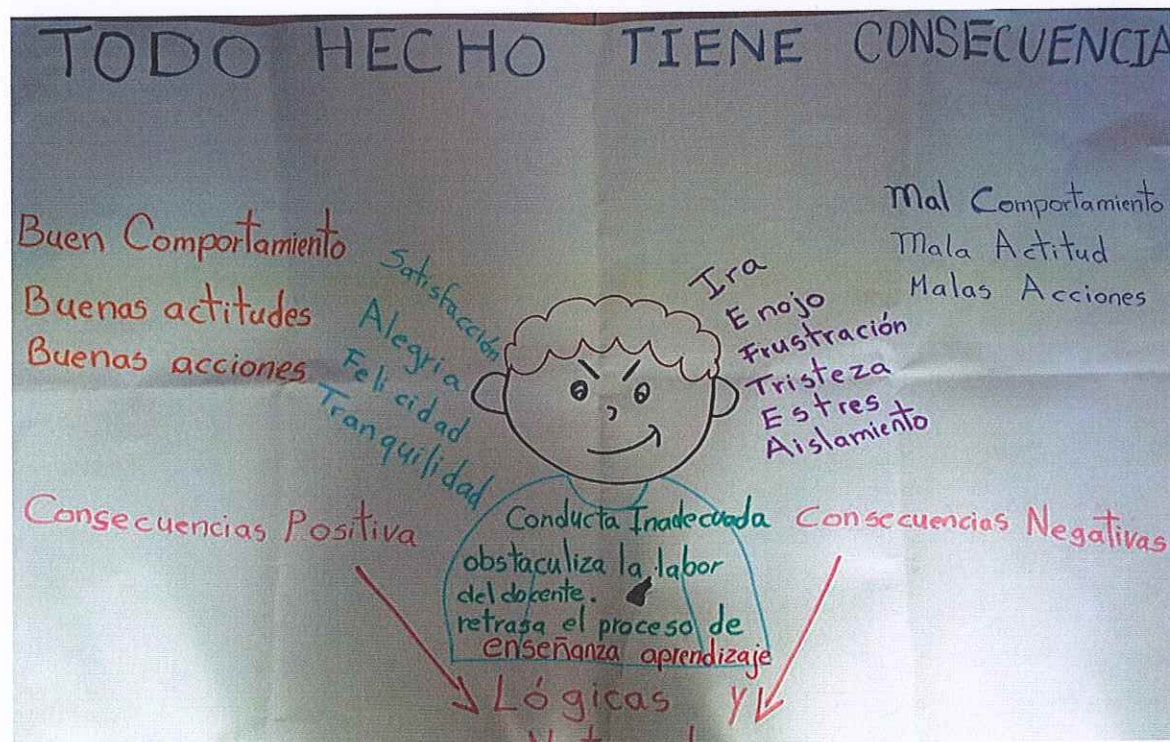 TODO HECHO TIENE CONSECUENCIA
Buen Comportamiento
Buenas actitudes
Buenas acciones
Satisfacción
Alegria
Felicidad
Tranquilidad
Ira
Enojo
Frustración
Tristeza
Estres
Aislamiento
Mal Comportamiento
Mala Actitud
Malas Acciones
Consecuencias Positiva
Conducta Inadecuada
obstaculiza la labor
del docente.
retrasa el proceso de
enseñanza aprendizaje
Consecuencias Negativas
Lógicas y